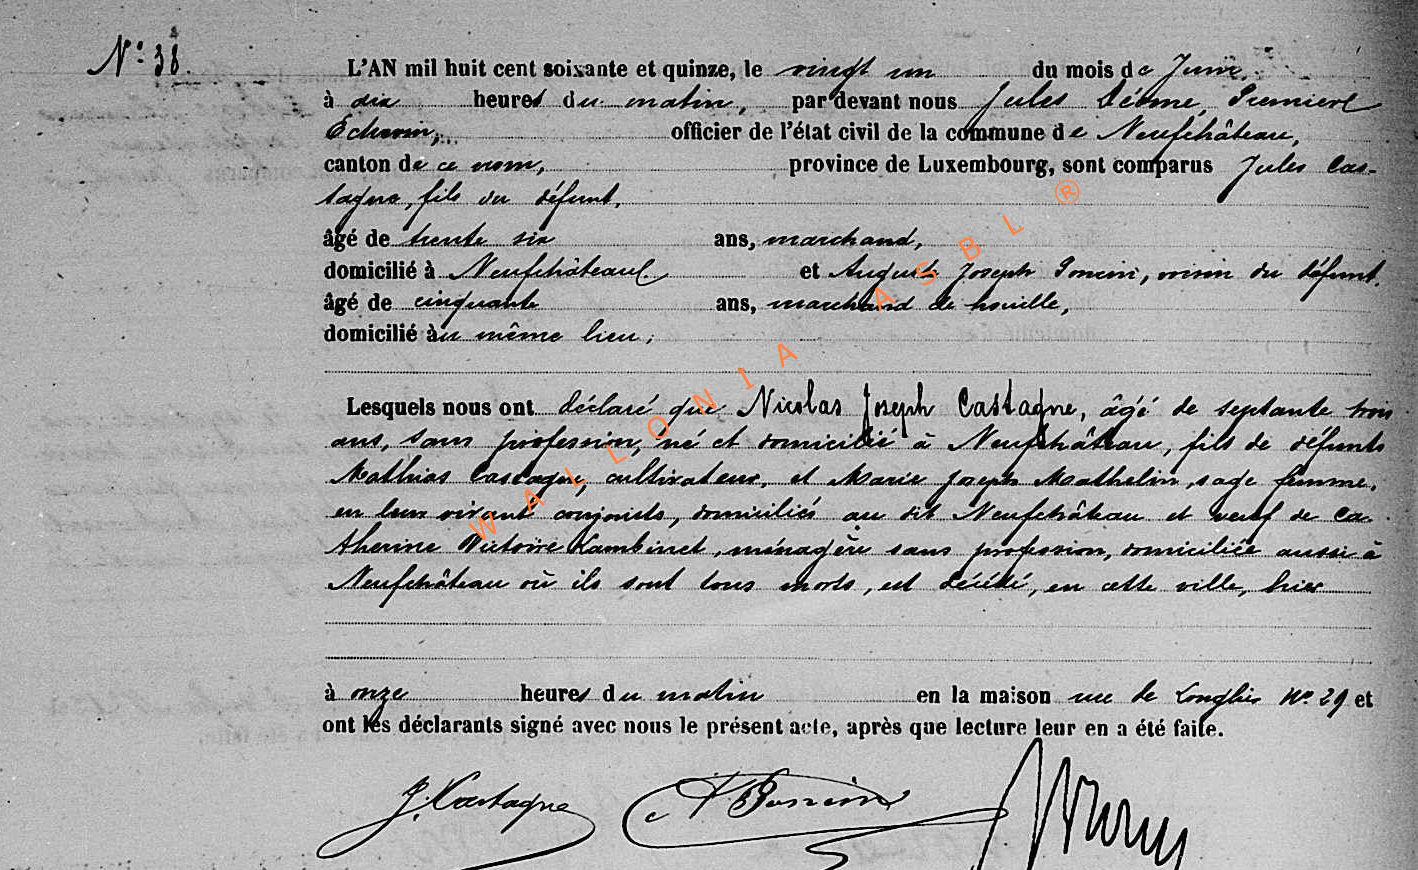 N° 38.
L'AN mil huit cent soixante et quinze, le vingt un du mois de Juin,
à dix heures du matin, par devant nous Jules Déome, Premier
Echevin, officier de l'état civil de la commune de Neufchâteau,
canton de ce nom, province de Luxembourg, sont comparus Jules Cas-
tagne, fils du défunt,
âgé de trente six ans, marchand,
domicilié à Neufchâteau et Auguste Joseph Poncin, voisin du défunt,
âgé de cinquante ans, marchand de houille,
domicilié au même lieu;
Lesquels nous ont déclaré que Nicolas Joseph Castagne, âgé de septante trois
ans, sans profession, né et domicilié à Neufchâteau, fils de défunts
Mathias Castagne, cultivateur, et Marie Joseph Mathelin, sage femme,
en leur vivant conjoints, domiciliés au dit Neufchâteau et veuf de Ca-
therine Victoire Lambinet, ménagère sans profession, domiciliée aussi à
Neufchâteau où ils sont tous morts, est décédé, en cette ville, hier
à onze heures du matin en la maison rue de Longlier N° 29 et
ont les déclarants signé avec nous le présent acte, après que lecture leur en a été faite.
J. Castagne A Poncin
WALLONIA ASBL ®